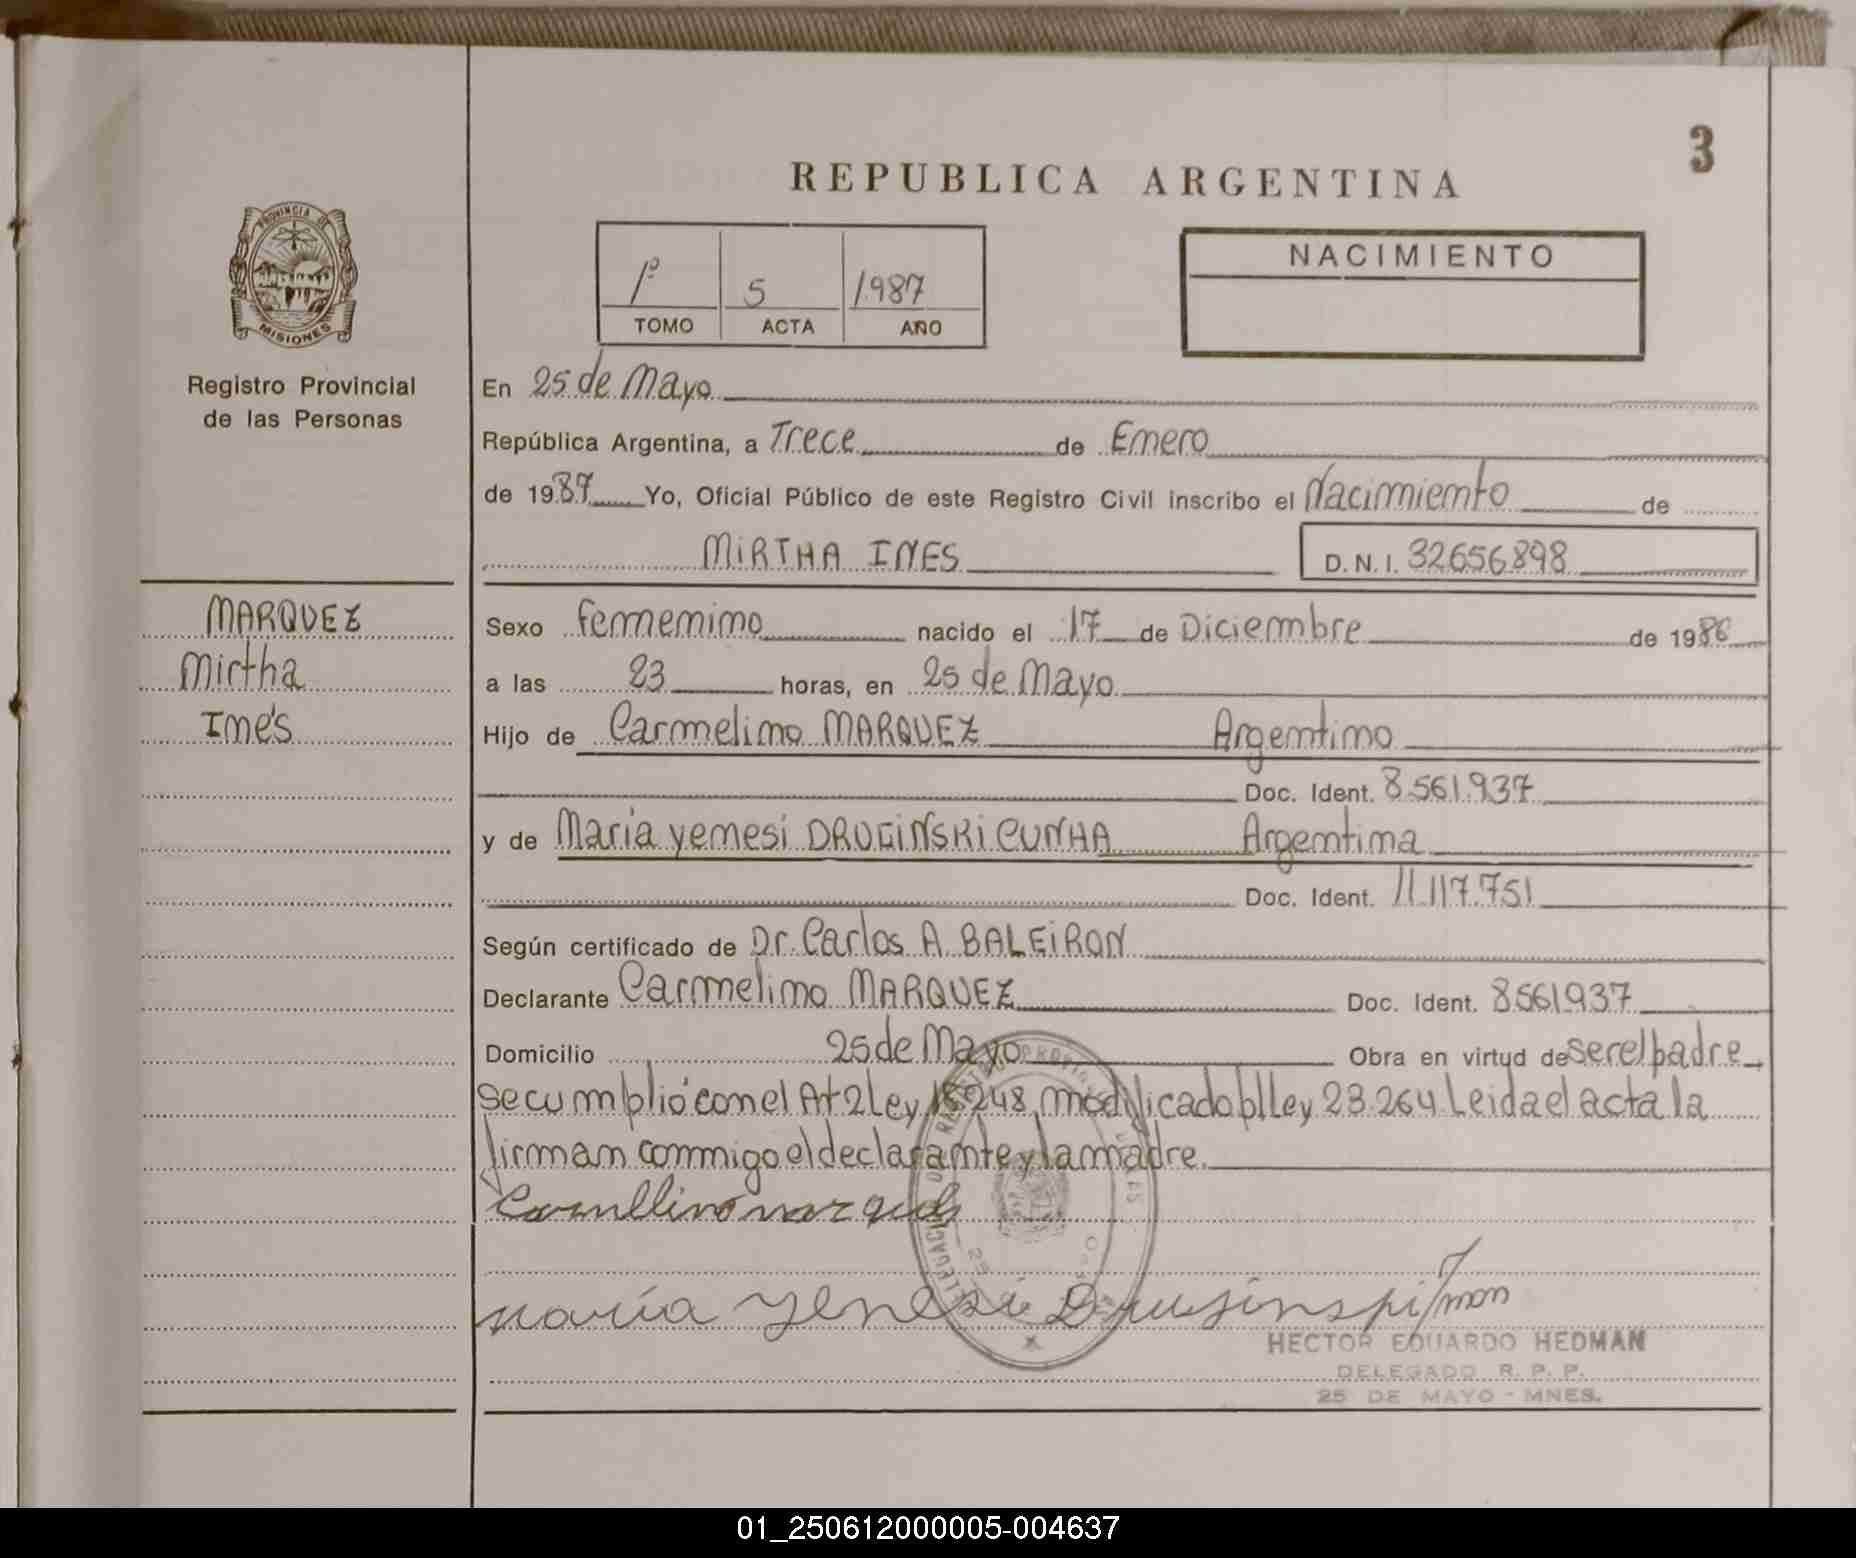 3
REPUBLICA ARGENTINA
PROVINCIA DE
MISIONES
Registro Provincial
de las Personas
1º 5 1987
TOMO ACTA AÑO
NACIMIENTO
En 25 de Mayo
República Argentina, a Trece de Enero
de 1987 Yo, Oficial Público de este Registro Civil inscribo el Nacimiento de
MIRTHA INES D.N.I. 32656898
MARQUEZ
Mirtha
Inés
Sexo femenino nacido el 17 de Diciembre de 1986
a las 23 horas, en 25 de Mayo
Hijo de Carmelino MARQUEZ Argentino
Doc. Ident. 8.561.937
y de Maria yenesi DRUGINSKI CUNHA Argentina
Doc. Ident. 11.117.751
Según certificado de Dr. Carlos A. BALEIRON
Declarante Carmelino MARQUEZ Doc. Ident. 8.561.937
Domicilio 25 de Mayo Obra en virtud de ser el padre
se cumplió con el At 2 Ley 18248, modificado p/ Ley 23.264 Leida el acta la
firman conmigo el declarante y la madre.
Carmelino marquez
maría yenesi
HECTOR EDUARDO HEDMAN
DELEGADO R. P. P.
25 DE MAYO - MNES.
01_250612000005-004637